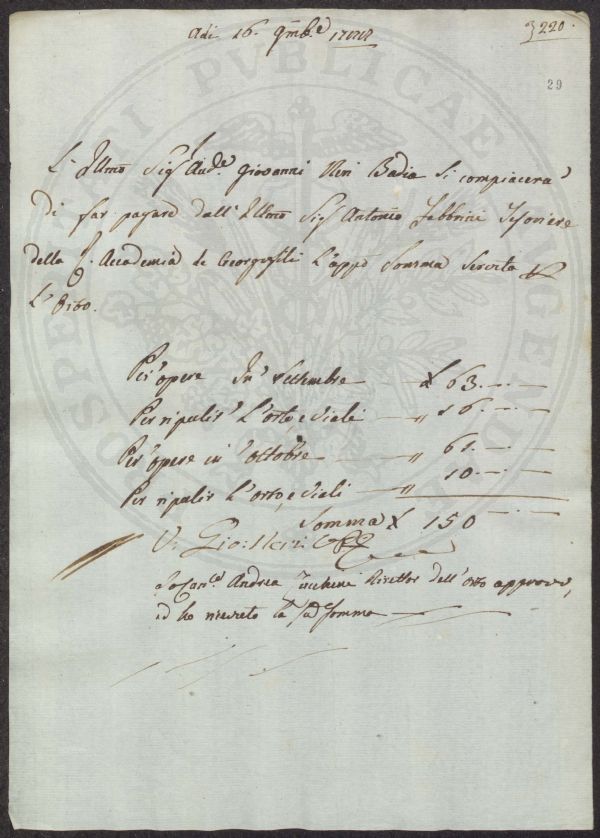 Adì 16. 9mb.e 1777
3220.
29
L' Illmo Sigr Aud.e Giovanni Neri Badia Si compiacerà
di far pagare dall' Illmo Sigr Antonio Fabbrini Tesoriere
della R. Accademia de Georgofili L'appo Somma Servita p
L'Orto.
Per opere In Settembre — £ 63. — —
Per ripulir L'orto, e viali — „ 16. — —
Per opere in Ottobre — „ 61. — —
Per ripulir L'orto, e viali — „ 10. — —
Somma £ 150 — —
V. Gio: Neri
Io Can.co Andrea Zucchini Direttor dell'Orto approvo,
ed ho ricevuto la sd Somma
PROSPERITATI PUBLICAE AUGENDAE